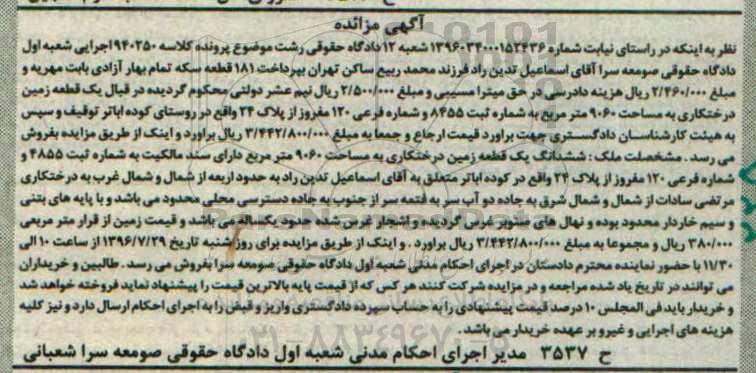 آگهی مزائده
نظر به اینکه در راستای نیابت شماره ۱۳۹۶۰۳۴۰۰۰۱۵۲۴۳۶ شعبه ۱۲ دادگاه حقوقی رشت موضوع پرونده کلاسه ۹۴۰۲۵۰ اجرایی شعبه اول
دادگاه حقوقی صومعه سرا آقای اسماعیل تدین راد فرزند محمد ربیع ساکن تهران بپرداخت ۱۸۱ قطعه سکه تمام بهار آزادی بابت مهریه و
مبلغ ۲/۴۶۰/۰۰۰ ریال هزینه دادرسی در حق میترا مسیبی و مبلغ ۲/۵۰۰/۰۰۰ ریال نیم عشر دولتی محکوم گردیده در قبال یک قطعه زمین
درختکاری به مساحت ۹۰۶۰ متر مربع به شماره ثبت ۸۴۵۵ و شماره فرعی ۱۲۰ مفروز از پلاک ۲۴ واقع در روستای کوده اباتر توقیف و سپس
به هیئت کارشناسان دادگستری جهت براورد قیمت ارجاع و جمعا به مبلغ ۳/۴۴۲/۸۰۰/۰۰۰ ریال براورد و اینک از طریق مزایده بفروش
می رسد . مشخصلت ملک : ششدانگ یک قطعه زمین درختکاری به مساحت ۹۰۶۰ متر مربع دارای سند مالکیت به شماره ثبت ۴۸۵۵ و
شماره فرعی ۱۲۰ مفروز از پلاک ۲۴ واقع در کوده اباتر متعلق به آقای اسماعیل تدین راد به حدود اربعه از شمال و شمال غرب به درختکاری
مرتضی سادات از شمال و شمال شرق به جاده دو آب سر به فتمه سر از جنوب به جاده دسترسی محلی محدود می باشد و با پایه های بتنی
و سیم خاردار محدود بوده و نهال های صنوبر غرس گردیده و اشجار غرس شده حدود یکساله می باشد و قیمت زمین از قرار متر مربعی
۳۸۰/۰۰۰ ریال و مجموعا به مبلغ ۳/۴۴۲/۸۰۰/۰۰۰ ریال براورد . و اینک از طریق مزایده برای روز شنبه تاریخ ۱۳۹۶/۷/۲۹ از ساعت ۱۰ الی
۱۱/۳۰ با حضور نماینده محترم دادستان در اجرای احکام مدنی شعبه اول دادگاه حقوقی صومعه سرا بفروش می رسد . طالبین و خریداران
می توانند در تاریخ یاد شده مراجعه و در مزایده شرکت کنند هر کس که از قیمت پایه بالاترین قیمت را پیشنهاد نماید فروخته خواهد شد
و خریدار باید فی المجلس ۱۰ درصد قیمت پیشنهادی را به حساب سپرده دادگستری واریز و قبض را به اجرای احکام ارسال دارد و نیز کلیه
هزینه های اجرایی و غیرو بر عهده خریدار می باشد .
ح ۳۵۳۷ مدیر اجرای احکام مدنی شعبه اول دادگاه حقوقی صومعه سرا شعبانی